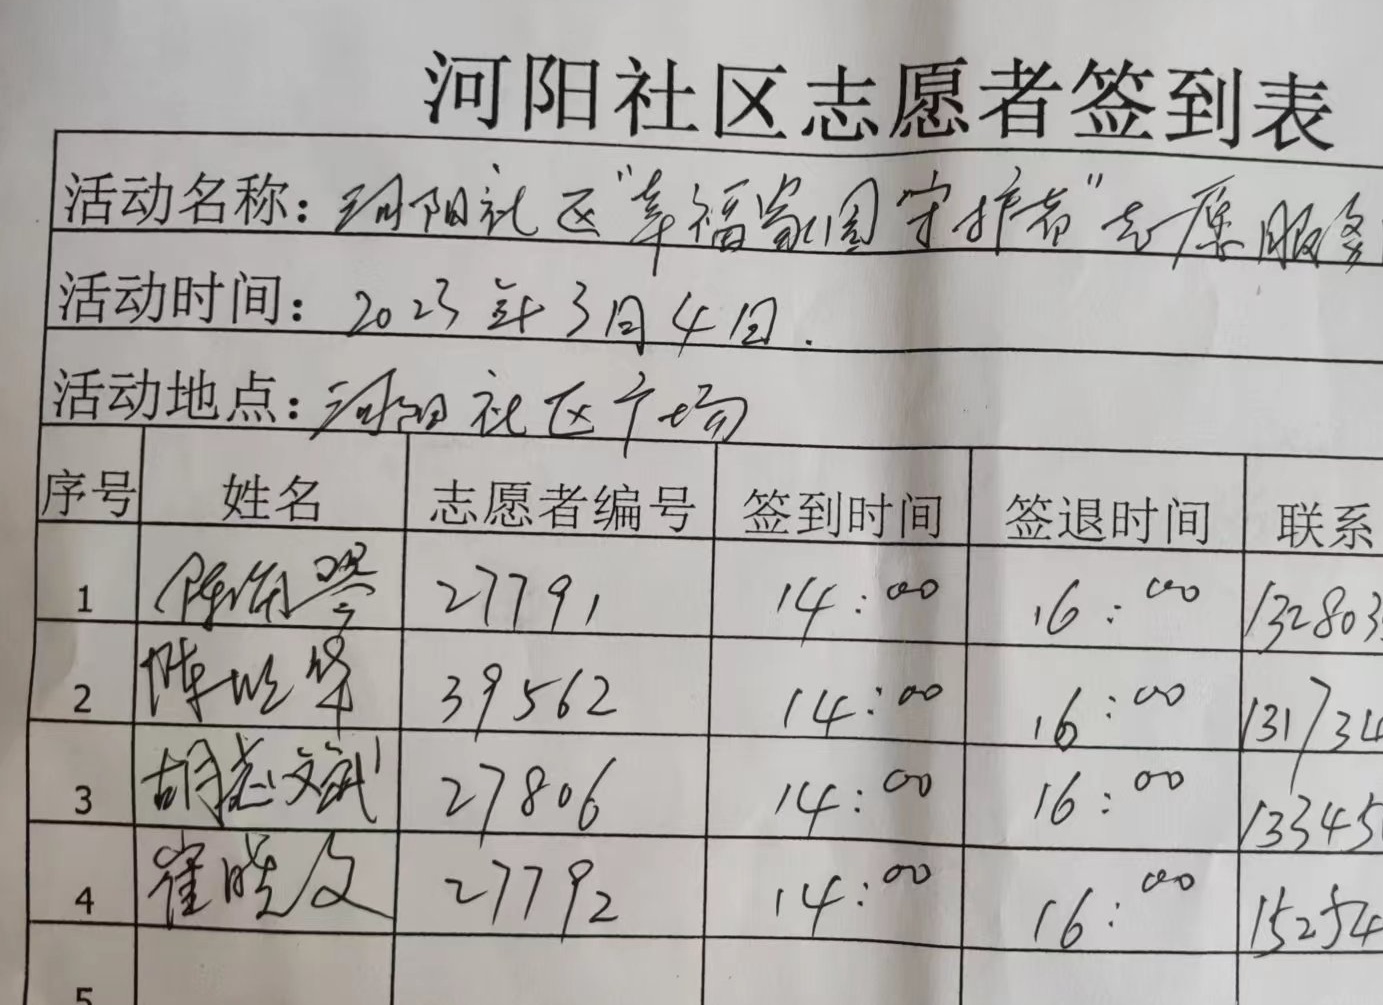 河阳社区志愿者签到表
活动名称：河阳社区“幸福家园守护者”志愿服务
活动时间：2023年3月4日.
活动地点：河阳社区广场
序号 姓名 志愿者编号 签到时间 签退时间 联系
1 27791 14:00 16:00 132803
2 陈 39562 14:00 16:00 131734
3 胡志斌 27806 14:00 16:00 13345
4 崔晓文 27792 14:00 16:00 15254
5